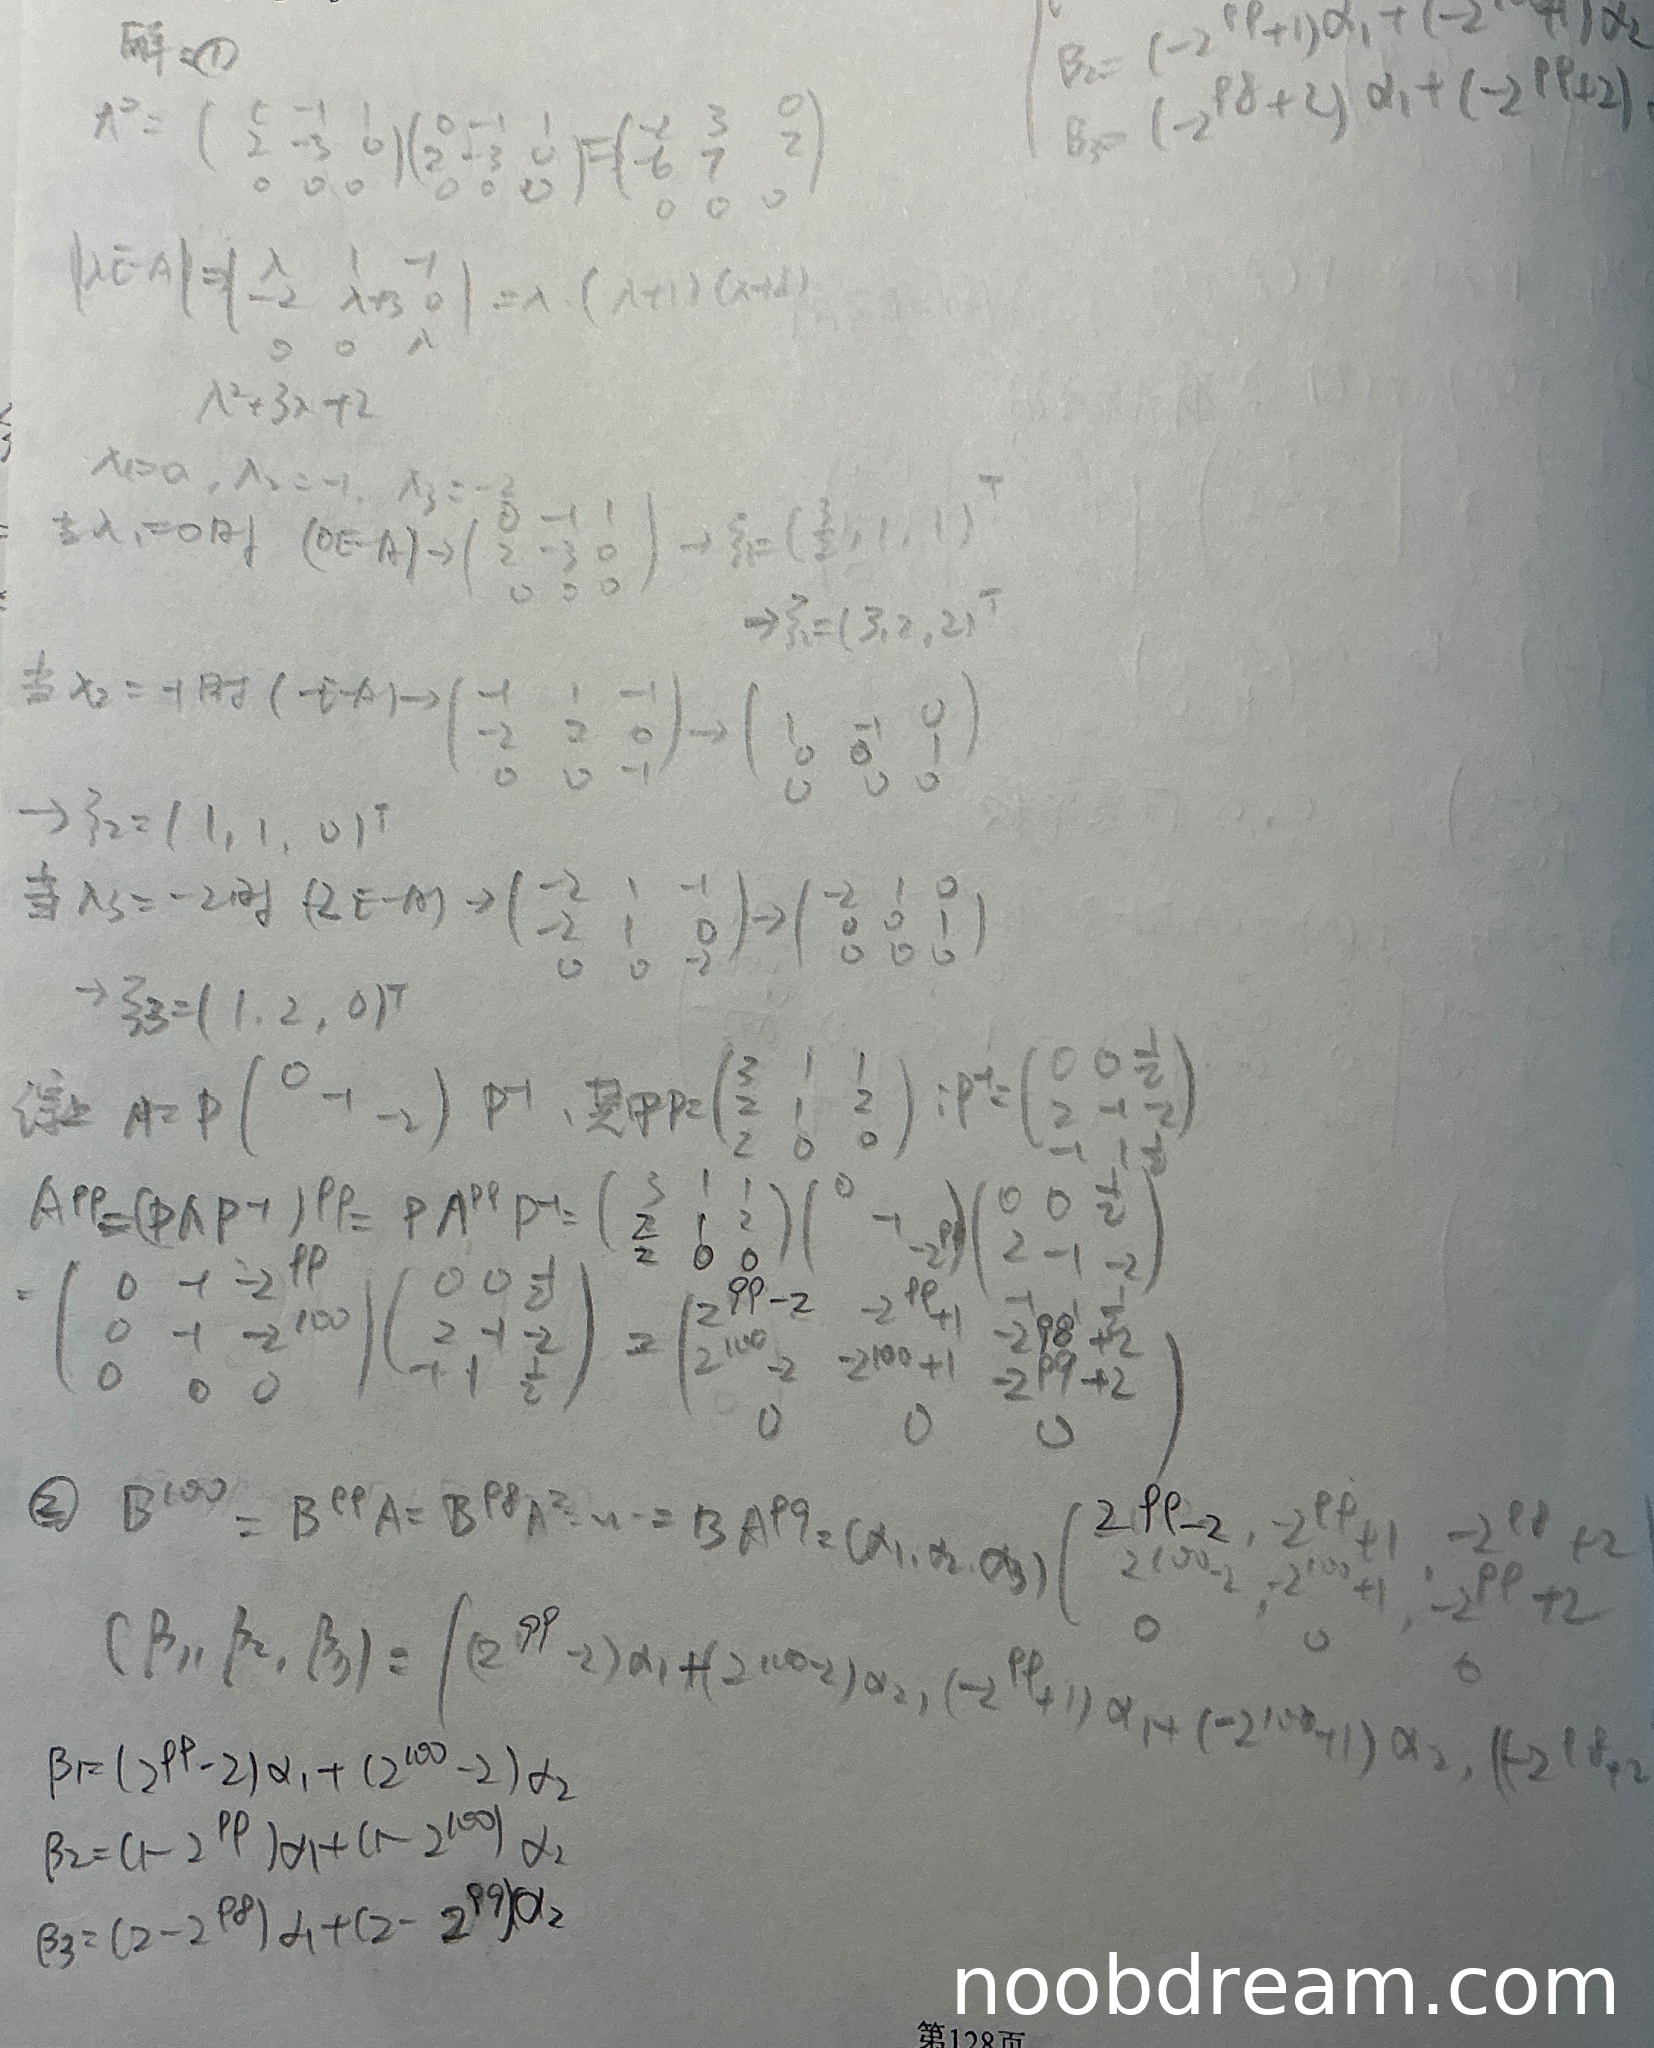 解:①
β₂= (-2⁹⁹+1)α₁+(-2¹⁰⁰+1)α₂
β₃= (-2⁹⁸+2)α₁+(-2⁹⁹+2)
A²= ( 0 -1 1 ; 2 -3 0 ; 0 0 0 )( 0 -1 1 ; 2 -3 0 ; 0 0 0 )=( -2 3 0 ; -6 7 2 ; 0 0 0 )
|λE-A|=| λ 1 -1 ; -2 λ+3 0 ; 0 0 λ | =λ·(λ+1)(λ+2)
λ²+3λ+2
λ₁=0, λ₂=-1, λ₃=-2
当λ₁=0时 (0E-A)→( 0 -1 1 ; 2 -3 0 ; 0 0 0 ) → ξ₁=(3/2, 1, 1)ᵀ
→ξ₁=(3,2,2)ᵀ
当λ₂=-1时(-E-A)→( -1 1 -1 ; -2 2 0 ; 0 0 -1 )→( 1 -1 0 ; 0 0 1 ; 0 0 0 )
→ξ₂=(1, 1, 0)ᵀ
当λ₃=-2时 (2E-A)→( -2 1 -1 ; -2 1 0 ; 0 0 -2 )→( -2 1 0 ; 0 0 1 ; 0 0 0 )
→ξ₃=(1, 2, 0)ᵀ
综上 A=P( 0 -1 -2 )P⁻¹, 其中P=( 3 1 1 ; 2 1 2 ; 2 0 0 ) ; P⁻¹=( 0 0 1/2 ; 2 -1 -2 ; -1 1 1/2 )
A⁹⁹=(PΛP⁻¹)⁹⁹= PΛ⁹⁹P⁻¹=( 3 1 1 ; 2 1 2 ; 2 0 0 )( 0 -1 -2⁹⁹ )( 0 0 1/2 ; 2 -1 -2 ; -1 1 1/2 )
=( 0 -1 -2⁹⁹ ; 0 -1 -2¹⁰⁰ ; 0 0 0 )( 0 0 1/2 ; 2 -1 -2 ; -1 1 1/2 ) = ( 2⁹⁹-2 -2⁹⁹+1 -2⁹⁸+2 ; 2¹⁰⁰-2 -2¹⁰⁰+1 -2⁹⁹+2 ; 0 0 0 )
② B¹⁰⁰ = B⁹⁹A= B⁹⁸A²=…= BA⁹⁹=(α₁,α₂,α₃)( 2⁹⁹-2, -2⁹⁹+1, -2⁹⁸+2 ; 2¹⁰⁰-2, -2¹⁰⁰+1, -2⁹⁹+2 ; 0 0 0
(β₁, β₂, β₃)= ((2⁹⁹-2)α₁+(2¹⁰⁰-2)α₂, (-2⁹⁹+1)α₁+(-2¹⁰⁰+1)α₂, ((-2⁹⁸+2
β₁=(2⁹⁹-2)α₁+(2¹⁰⁰-2)α₂
β₂=(1-2⁹⁹)α₁+(1-2¹⁰⁰)α₂
β₃=(2-2⁹⁸)α₁+(2-2⁹⁹)α₂
noobdream.com
第128页